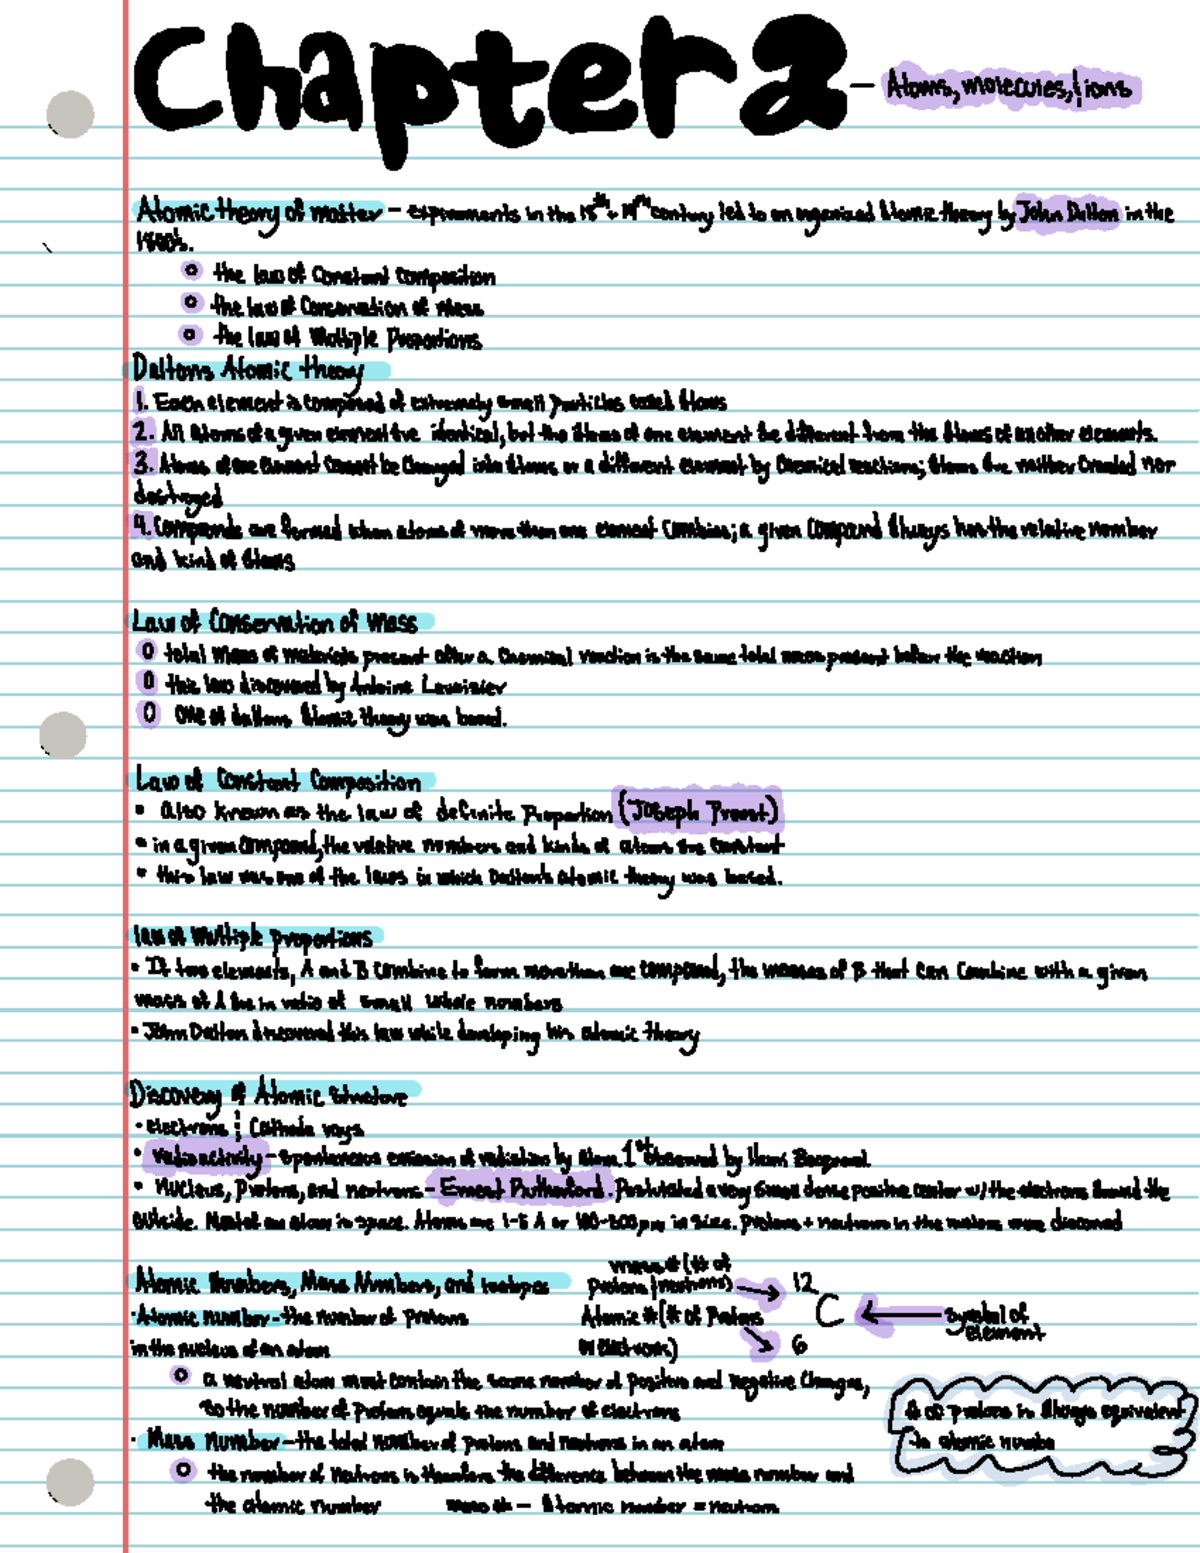 Chapter 2 - Atoms, molecules, & ions
Atomic theory of matter - experiments in the 18th + 19th century led to an organized Atomic theory by John Dalton in the
1800s.
the law of Constant composition
the law of Conservation of Mass
the law of Multiple Proportions
Daltons Atomic theory
1. Each element is composed of extremely small particles called Atoms
2. All Atoms of a given element are identical, but the Atoms of one element be different from the Atoms of another elements.
3. Atoms of one element cannot be changed into Atoms of a different element by Chemical reactions; Atoms are neither Created nor
destroyed
4. Compounds are formed when atoms of more than one element Combine; a given Compound Always has the relative number
and kind of Atoms
Law of Conservation of Mass
total Mass of materials present after a Chemical reaction is the same total mass present before the reaction
this law discovered by Antoine Lavoisier
One of daltons Atomic theory was based.
Law of Constant Composition
• also known as the law of definite Proportion (Joseph Proust)
• in a given Compound, the relative numbers and kinds of atoms are Constant
• this law was one of the laws in which Dalton's atomic theory was based.
law of Multiple proportions
• If two elements, A and B Combine to form more than one compound, the masses of B that can Combine with a given
mass of A are in ratio of small whole numbers
• John Dalton discovered this law while developing his atomic theory
Discovery of Atomic structure
• electrons & Cathode rays
• radioactivity - Spontaneous emission of radiation by Atom. 1st observed by Henri Becquerel
• Nucleus, Protons, and neutrons - Ernest Rutherford. Postulated a very small dense positive center w/ the electrons Around the
outside. Most of an Atom is space. Atoms are 1-5 A or 100-500 pm in size. protons + neutrons in the nucleus were discovered
Atomic Numbers, Mass Numbers, and Isotopes
mass # (# of
Protons + neutrons) → 12
• Atomic number - the number of protons
Atomic # (# of Protons C ← symbol of
element
in the nucleus of an atom
or electrons) 6
a neutral atom must contain the same number of positive and negative Charges,
so the number of Protons equals the number of electrons
# of protons is Always equivalent
to atomic number
• Mass number - the total number of protons and neutrons in an atom
the number of neutrons is therefore the difference between the mass number and
the atomic number mass # - Atomic number = neutrons